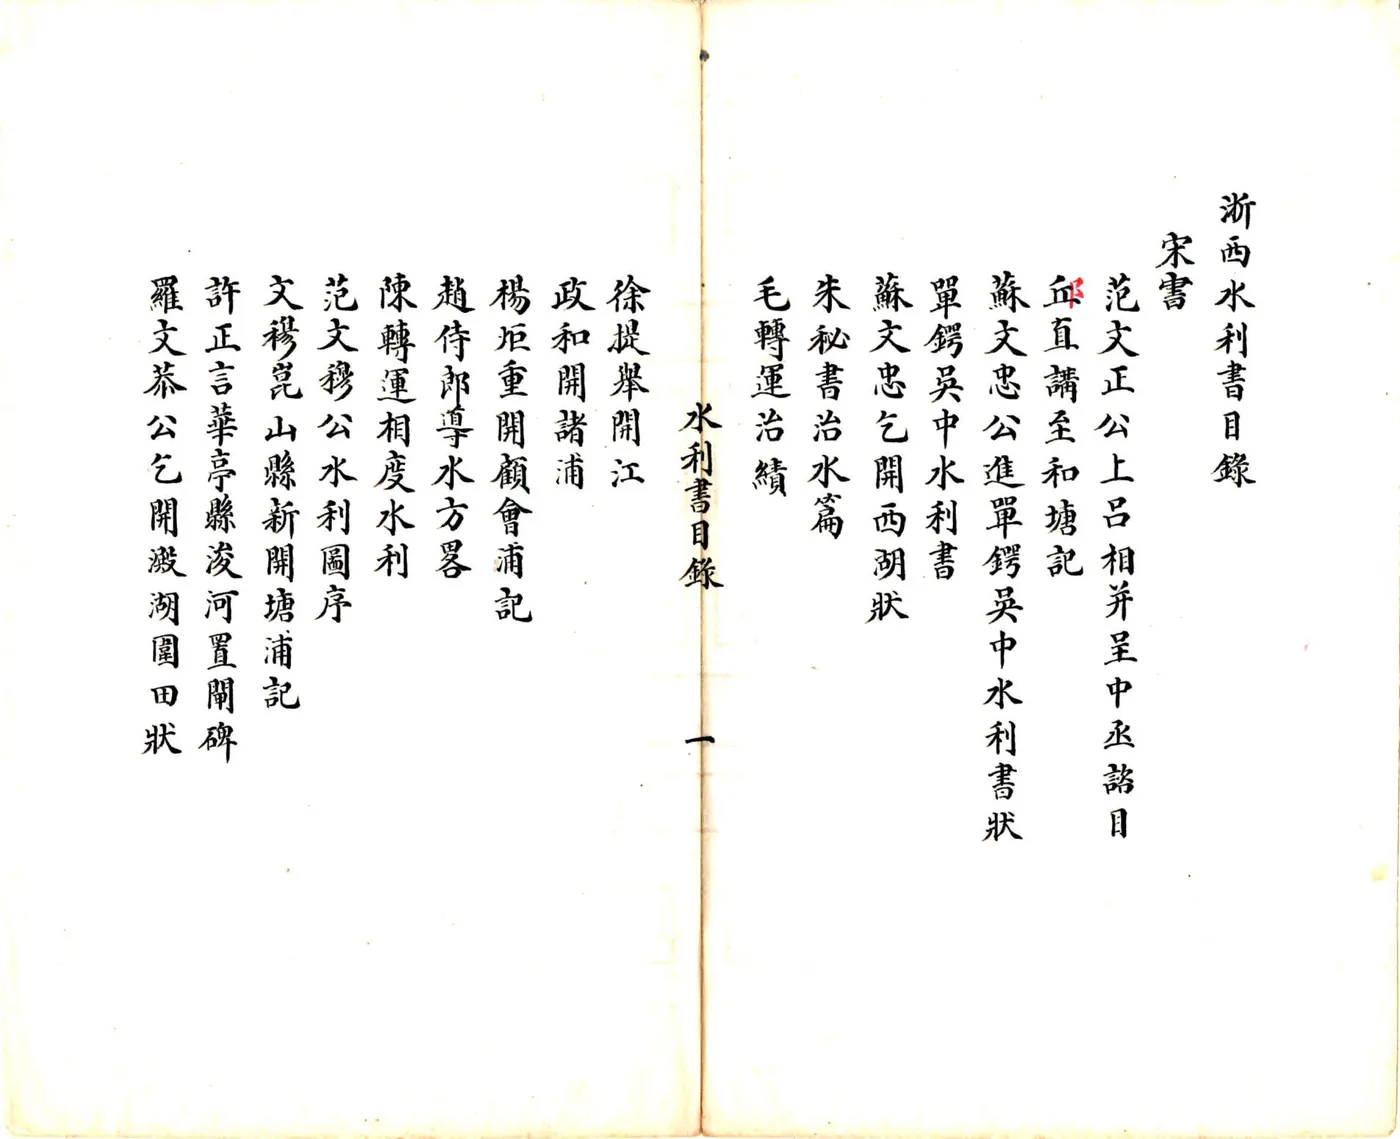 浙西水利書目錄
宋書
范文正公上呂相并呈中丞諮目
邱直講至和塘記
蘇文忠公進單鍔吳中水利書狀
單鍔吳中水利書
蘇文忠乞開西湖狀
朱秘書治水篇
毛轉運治績
水利書目錄 一
徐提舉開江
政和開諸浦
楊炬重開顧會浦記
趙侍郎導水方畧
陳轉運相度水利
范文穆公水利圖序
文穆崑山縣新開塘浦記
許正言華亭縣浚河置閘碑
羅文恭公乞開澱湖圍田狀